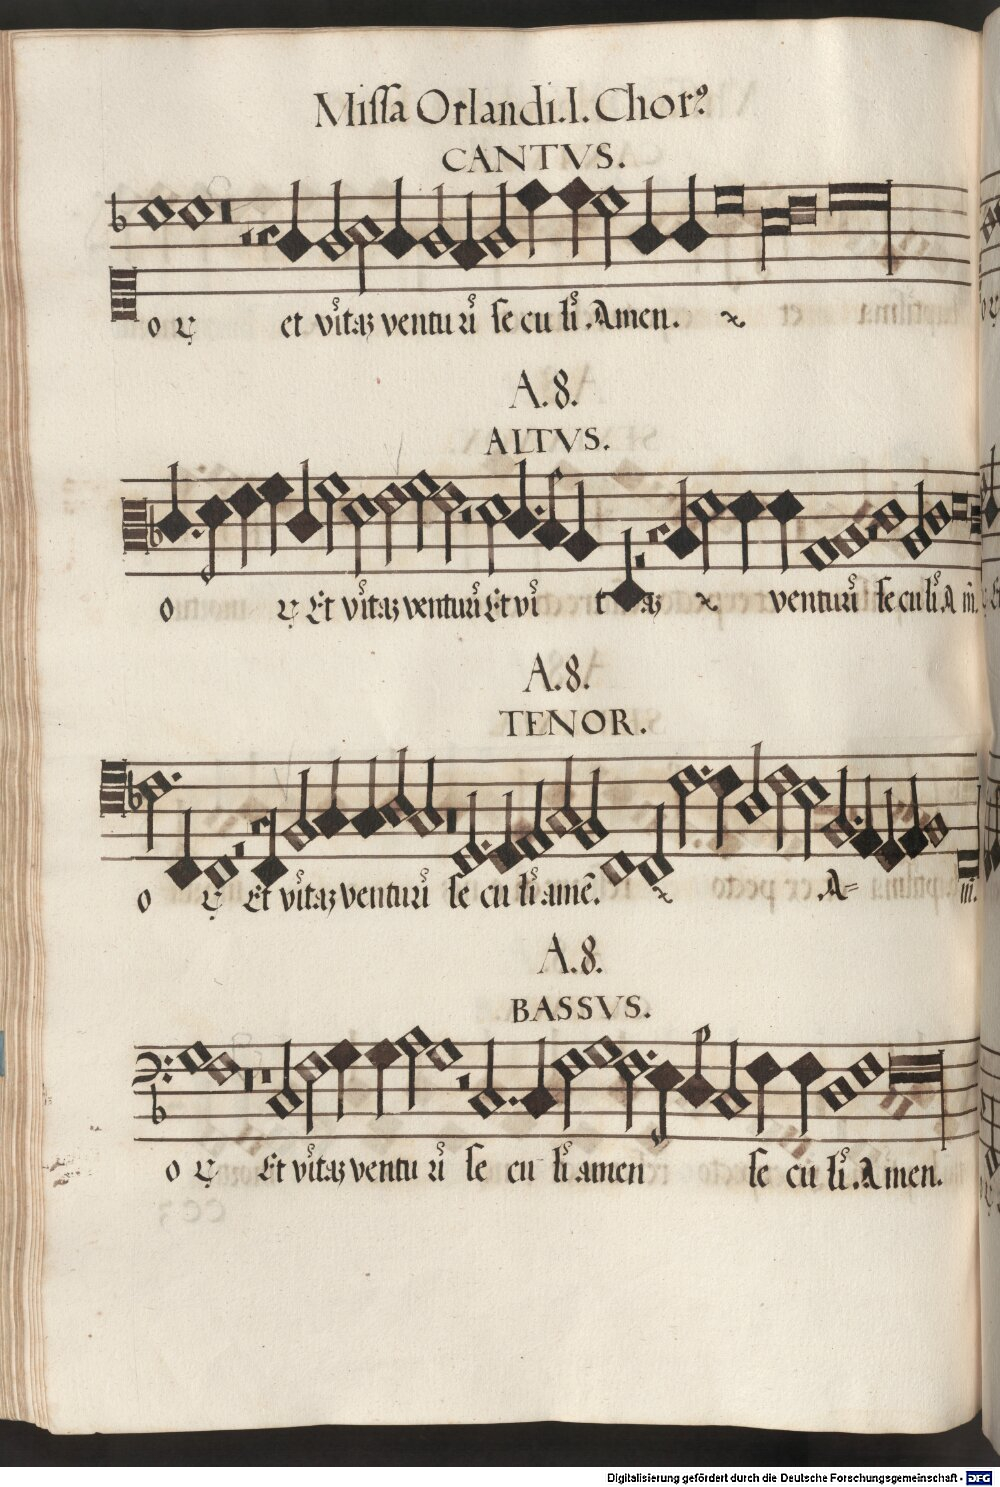 Missa Orlandi. I. Chor9
CANTVS.
et vitæ venturi seculi. Amen.
A. 8.
ALTVS.
o Et vitæ venturi Et vi tæ venturi seculi A m̄.
A. 8.
TENOR.
o Et vitæ venturi se culi amē. A= m̄.
A. 8.
BASSVS.
o Et vitæ venturi se cu li amen se cu li. Amen.
Digitalisierung gefördert durch die Deutsche Forschungsgemeinschaft - DFG